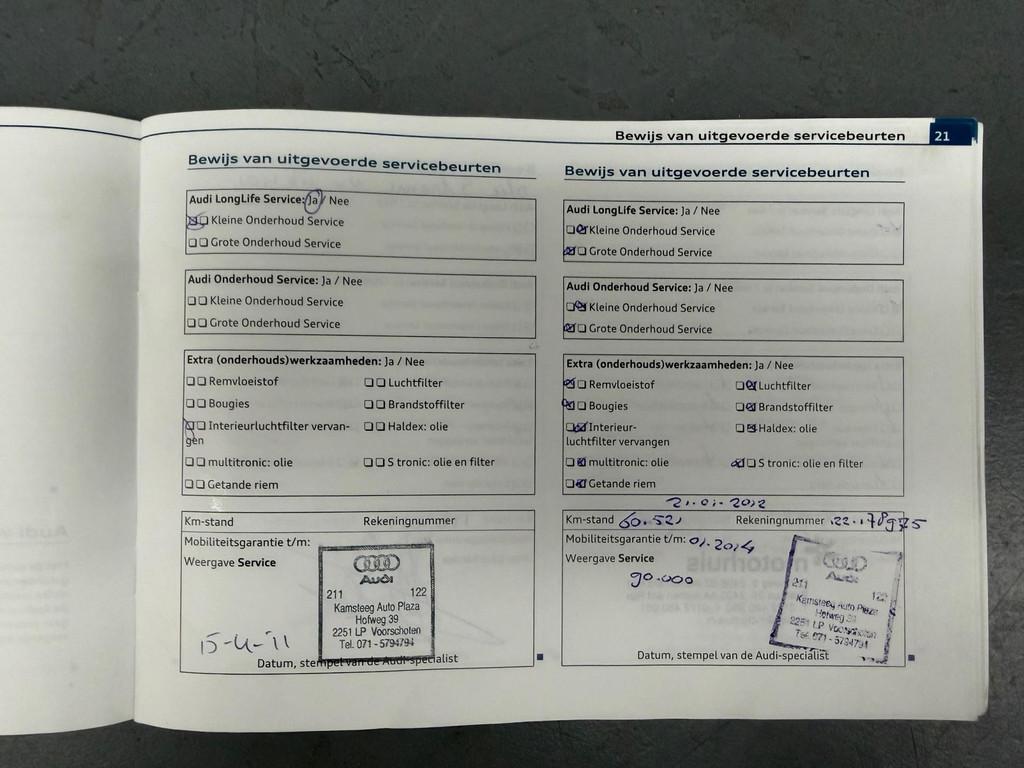 Bewijs van uitgevoerde servicebeurten 21
Bewijs van uitgevoerde servicebeurten
Audi LongLife Service: Ja / Nee
Kleine Onderhoud Service
Grote Onderhoud Service
Audi Onderhoud Service: Ja / Nee
Kleine Onderhoud Service
Grote Onderhoud Service
Extra (onderhouds)werkzaamheden: Ja / Nee
Remvloeistof Luchtfilter
Bougies Brandstoffilter
Interieurluchtfilter vervan- Haldex: olie
gen
multitronic: olie S tronic: olie en filter
Getande riem
Km-stand Rekeningnummer
Mobiliteitsgarantie t/m:
Weergave Service
Audi
211 122
Kamsteeg Auto Plaza
Hofweg 39
2251 LP Voorschoten
Tel. 071 - 5794794
15-4-'11
Datum, stempel van de Audi-specialist
Bewijs van uitgevoerde servicebeurten
Audi LongLife Service: Ja / Nee
Kleine Onderhoud Service
Grote Onderhoud Service
Audi Onderhoud Service: Ja / Nee
Kleine Onderhoud Service
Grote Onderhoud Service
Extra (onderhouds)werkzaamheden: Ja / Nee
Remvloeistof Luchtfilter
Bougies Brandstoffilter
Interieur- Haldex: olie
luchtfilter vervangen
multitronic: olie S tronic: olie en filter
Getande riem
21-01-2012
Km-stand 60.521 Rekeningnummer
Mobiliteitsgarantie t/m: 01.2014
Weergave Service
90.000
Audi
211 122
Kamsteeg Auto Plaza
Hofweg 39
2251 LP Voorschoten
Tel. 071 - 5794794
Datum, stempel van de Audi-specialist